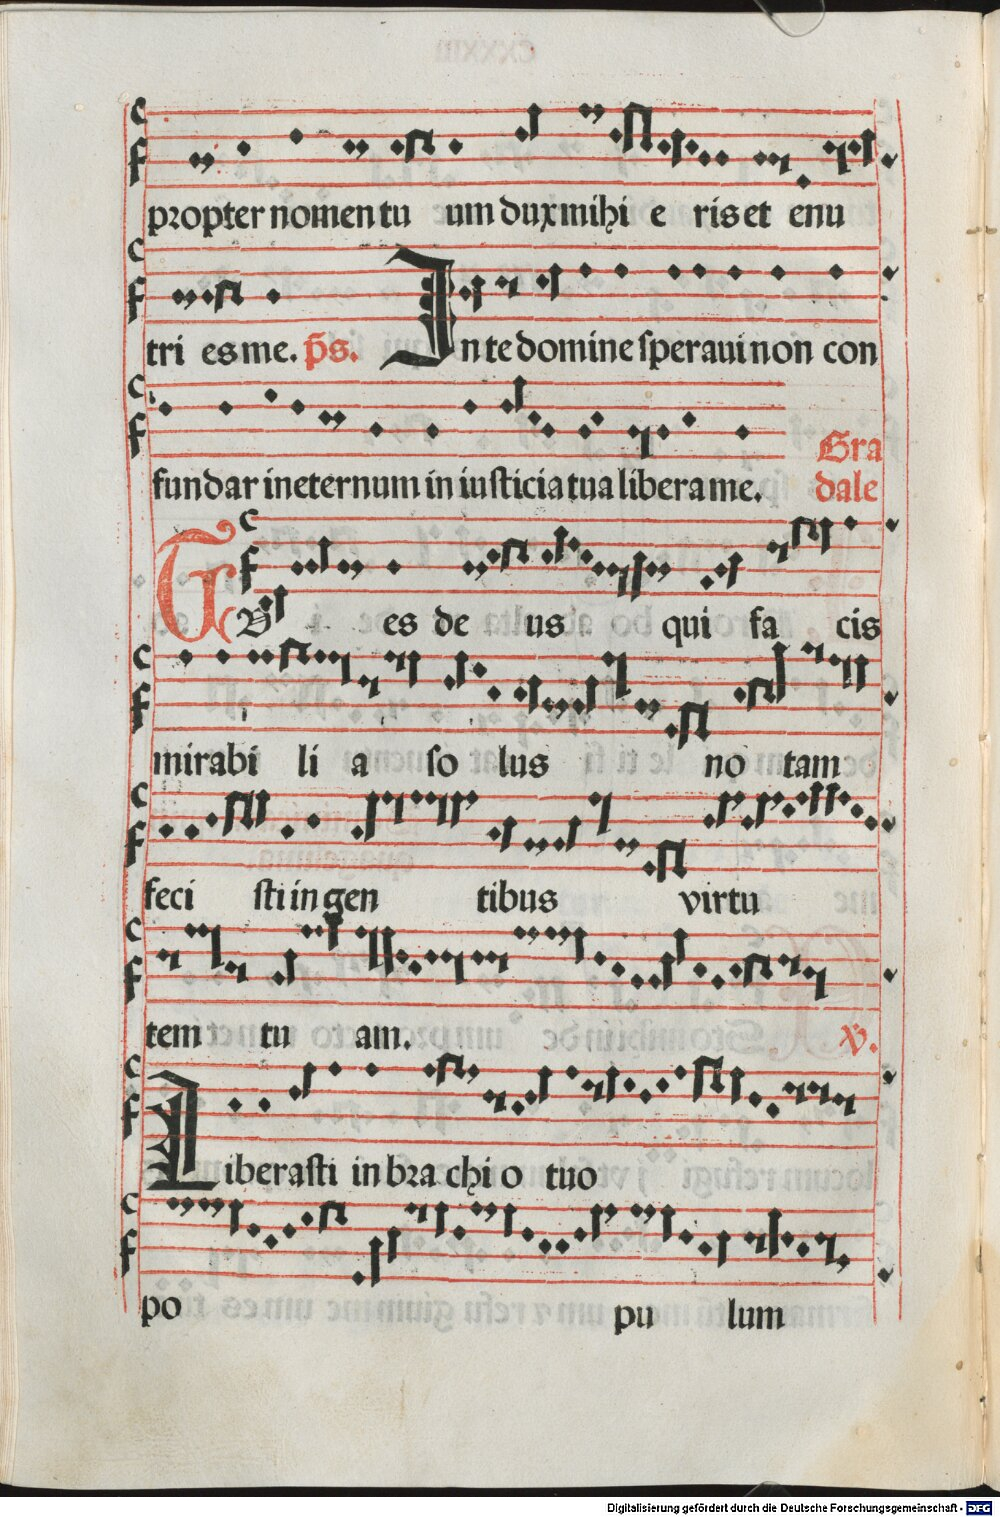 propter nomen tu um dux mihi e ris et enu
tri es me. p̄s. In te domine speraui non con
fundar in eternum in iusticia tua libera me. Gra
dale
TV es de us qui fa cis
mirabi li a so lus no tam
feci sti in gen tibus virtu
tem tu am. v.
Liberasti in bra chi o tuo
po pu lum
Digitalisierung gefördert durch die Deutsche Forschungsgemeinschaft - DFG